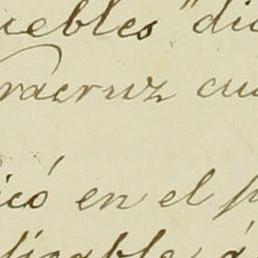 uebles" dic
racruz cu
icó en el p
licable á